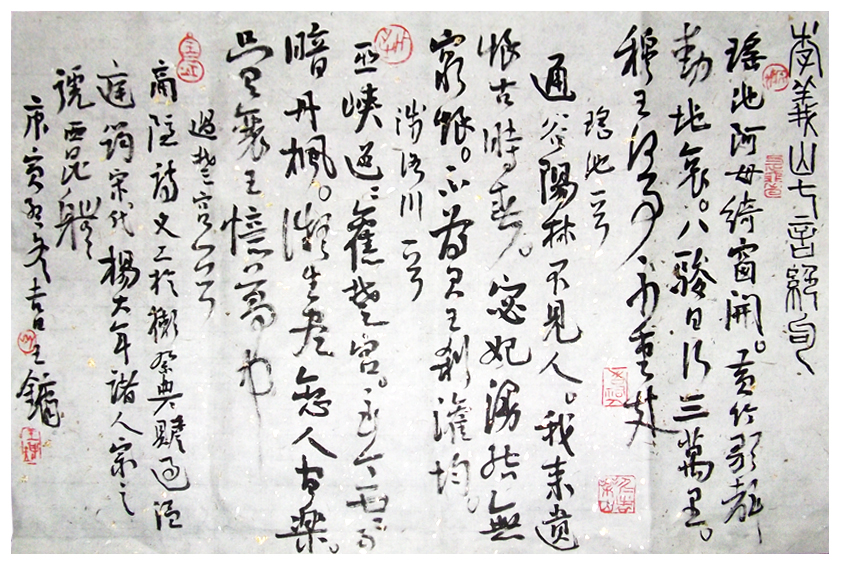 李義山七言絕句
瑤池阿母綺窗開。黃竹歌聲
動地哀。八駿日行三萬里。
穆王何事不重來
瑤池一首
通谷陽林不見人。我來遺
恨古時春。宓妃漫結無
窮恨。不為君王殺灌均。
涉洛川一首
巫峽迢迢舊楚宮。至今雲雨
暗丹楓。微生盡戀人間樂。
只有襄王憶夢中
過楚宮一首
商隱詩文工於獺祭典贍過溫
庭筠宋代楊大年諸人宗之
號西昆體
庚寅冬吉日王鏞